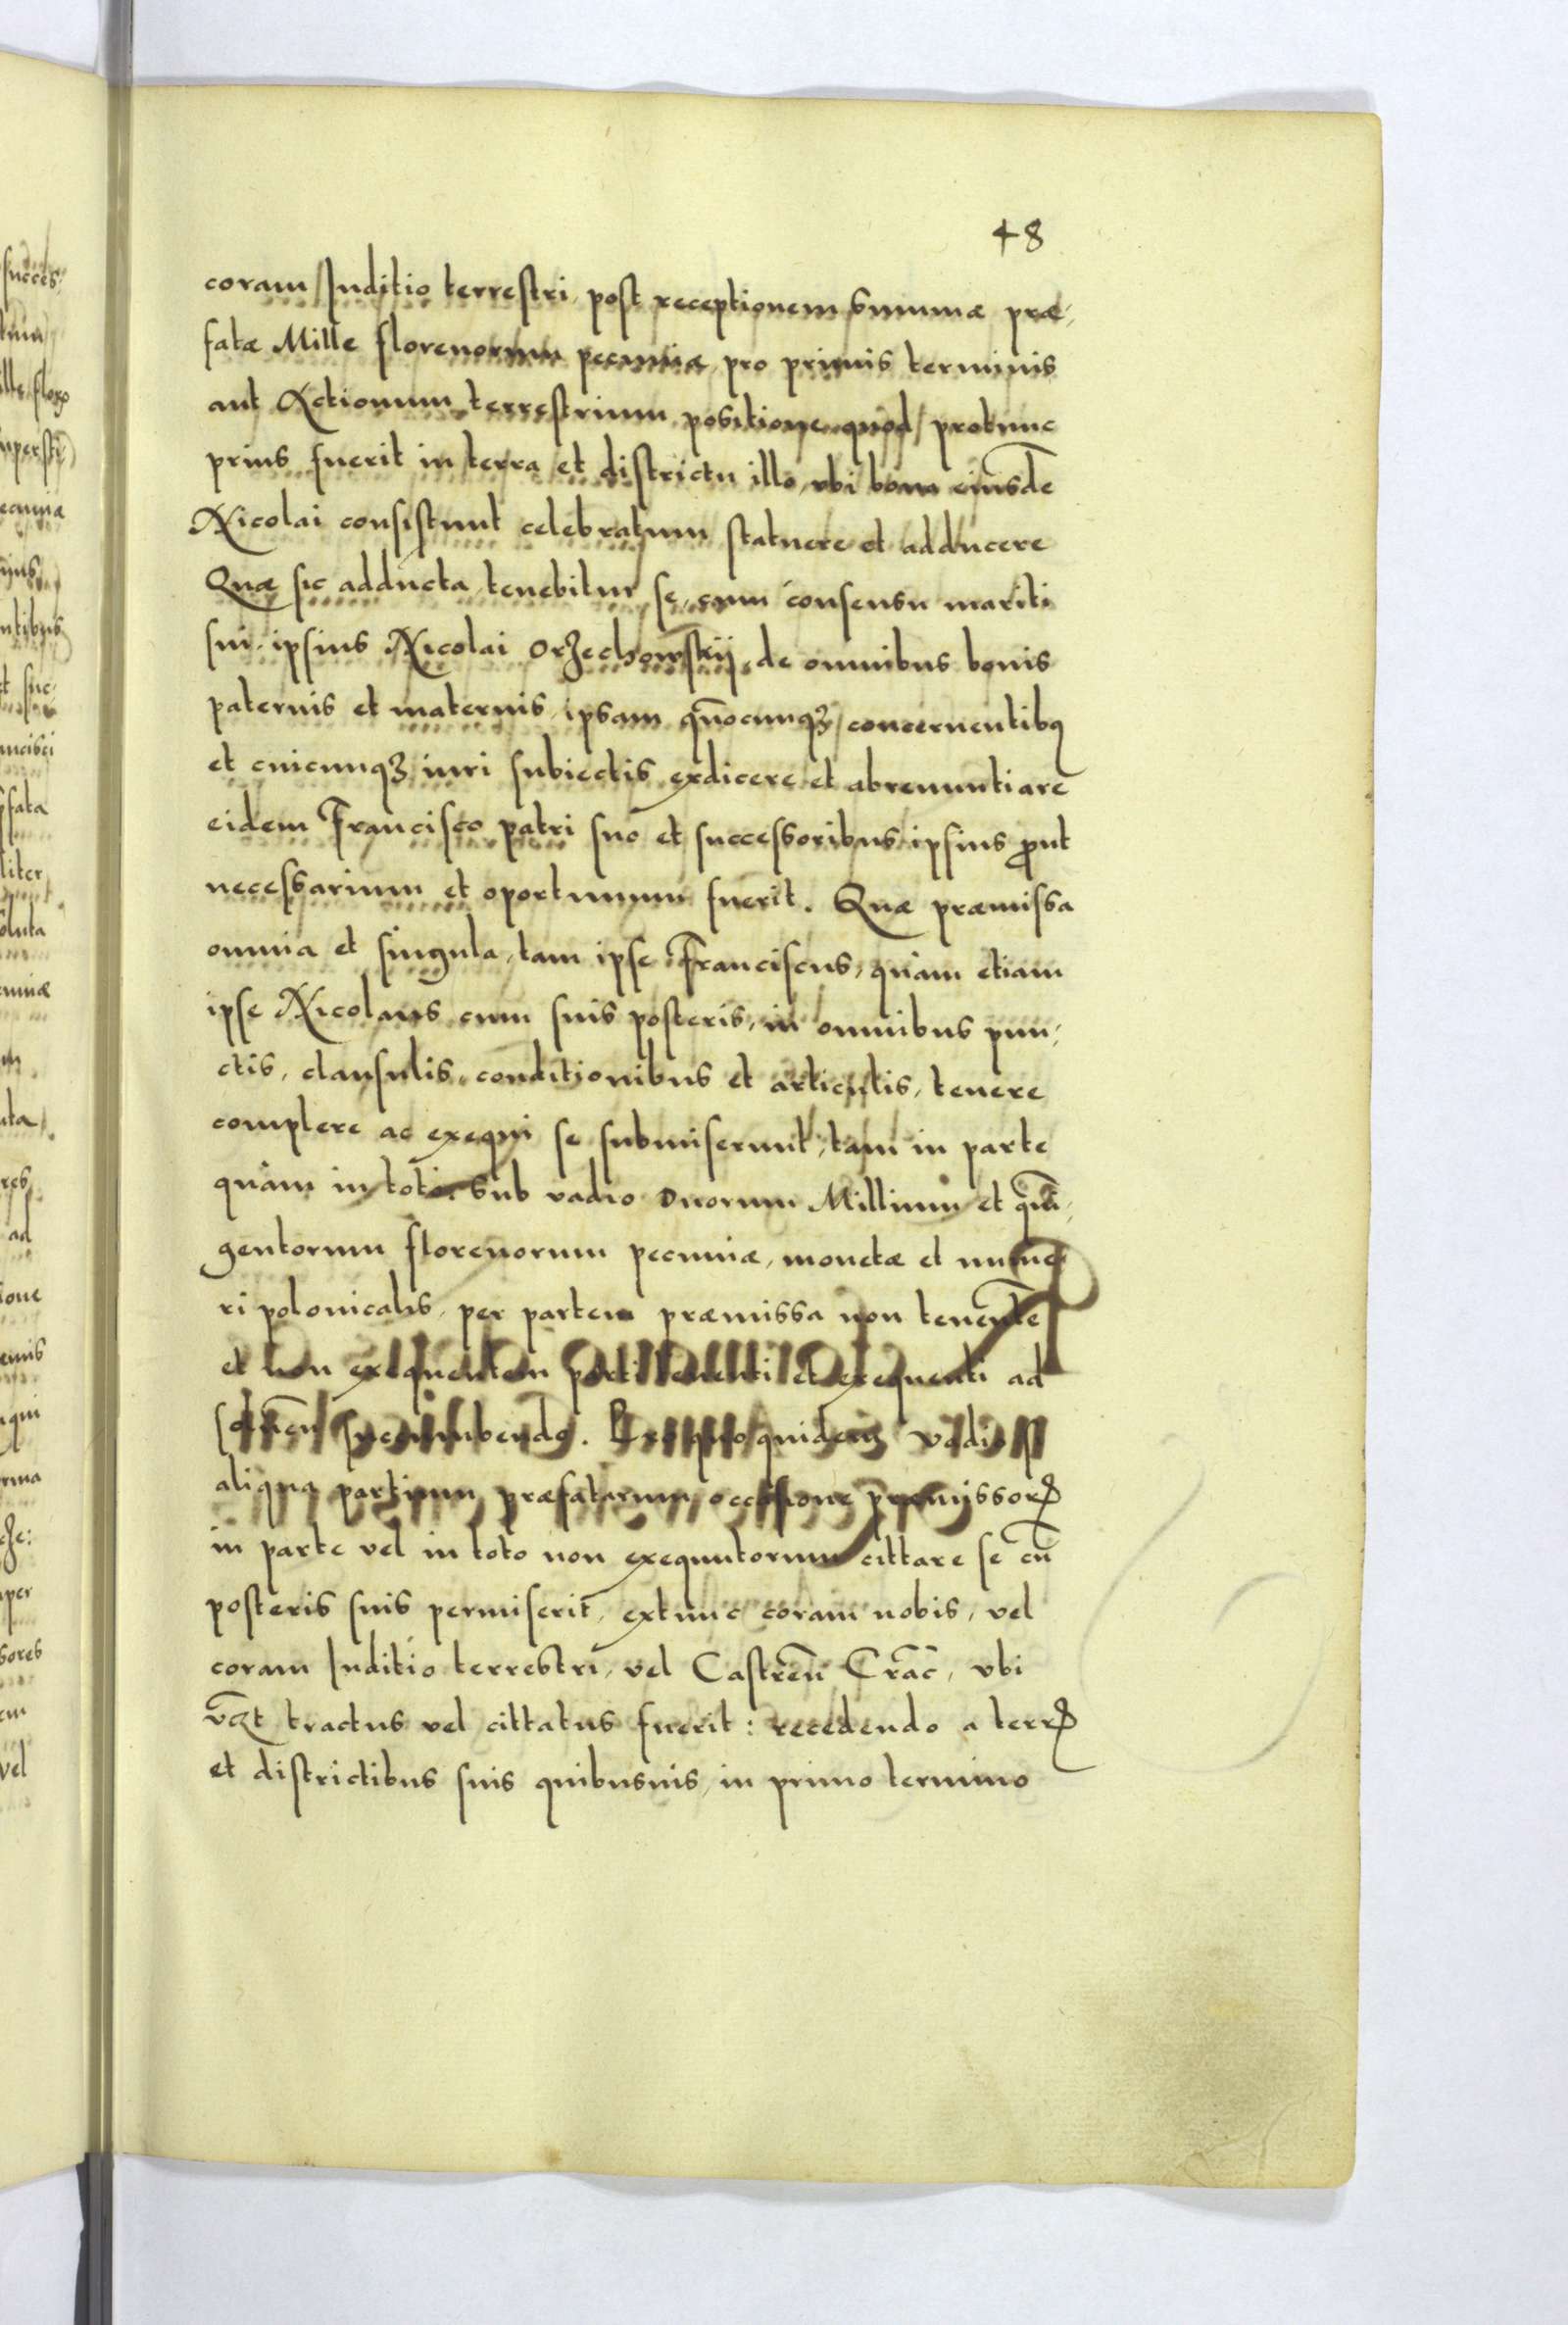 48
coram Juditio terrestri, post receptionem summæ præ,
fatæ Mille florenorum pecuniæ, pro primis terminis
aut Actionum terrestrium positione quod protunc
prius fuerit in terra et districtu illo, vbi bona eiusdē
Nicolai consistunt celebratum statuere et adducere
Quæ sic adducta tenebitur se, cum consensu mariti
sui ipsius Nicolai Orzechowskij, de omnibus bonis
paternis et maternis ipsam quōcunqꝫ concernentibꝰ
et cuicunqꝫ iuri subiectis exdicere et abrenuntiare
eidem Francisco patri suo et successoribus ipsius ꝓut
necessarium et oportunum fuerit. Quæ præmissa
omnia et singula, tam ipse Franciscus, quàm etiam
ipse Nicolaus cum suis posteris, in omnibus pun,
ctis, clausulis, conditionibus et articulis, tenere
complere ac exequi se submiserunt, tam in parte
quàm in toto. Sub vadio Duorum Millium et quī,
gentorum florenorum pecuniæ, monetæ et nume
ri polonicalis, per partem præmissa non tenentē
et non exequentem parti tenenti et exequenti ad
solueñ succumbendo. Pro quo quidem vadio si
aliqua partium præfatarum occasione præmissorꝝ
in parte vel in toto non exequutorum cittare se cū
posteris suis permiserit, extunc coram nobis, vel
coram Juditio terrestri, vel Castreñ Crac̄, vbi
vꝫt tractus vel cittatus fuerit: recedendo a terrꝭ
et districtibus suis quibusuis, in primo termino